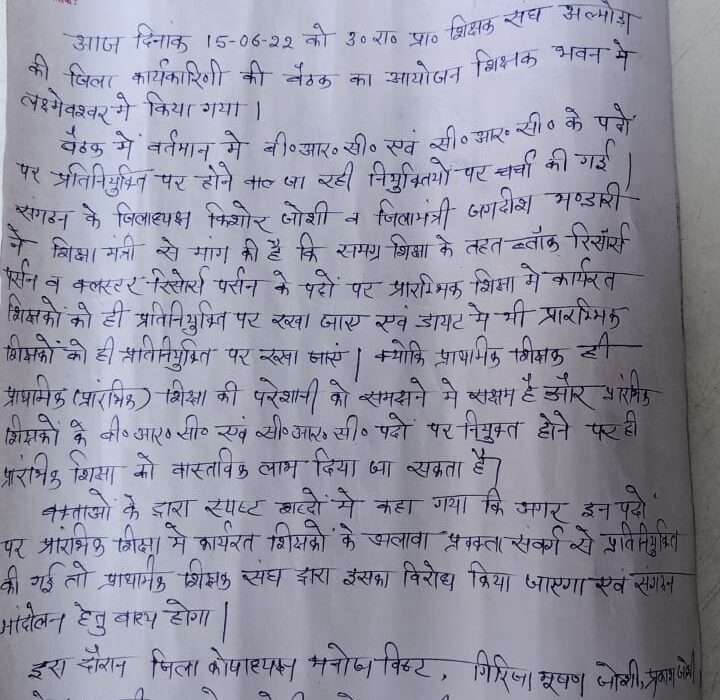 आज दिनाक 15-06-22 को उ०रा० प्रा० शिक्षक संघ अल्मोडा
की जिला कार्यकारिणी की बैठक का आयोजन शिक्षक भवन मे
लक्ष्मेश्वर मे किया गया।
बैठक में वर्तमान मे बी०आर०सी० एवं सी०आर०सी० के पदों
पर प्रतिनियुक्ति पर होने वाल जा रही नियुक्तियों पर चर्चा की गई।
संगठन के जिलाध्यक्ष किशोर जोशी व जिलामंत्री जगदीश भण्डारी
ने शिक्षा मंत्री से मांग की है कि समग्र शिक्षा के तहत ब्लॉक रिसोर्स
पर्सन व क्लस्टर रिसोर्स पर्सन के पदों पर प्रारम्भिक शिक्षा मे कार्यरत
शिक्षकों को ही प्रतिनियुक्ति पर रखा जाए एवं डायट मे भी प्रारम्भिक
शिक्षकों को ही प्रतिनियुक्ति पर रखा जाएं। क्योकि प्राथमिक शिक्षक ही
प्राथमिक (प्रारंभिक) शिक्षा की परेशानी को समझने मे सक्षम है और प्रारंभिक
शिक्षकों के बी०आर०सी० एवं सी०आर०सी० पदों पर नियुक्त होने पर ही
प्रारंभिक शिक्षा को वास्तविक लाभ दिया जा सकता है।
वक्ताओं के द्वारा स्पष्ट शब्दों मे कहा गया कि अगर इन पदों
पर प्रारंभिक शिक्षा मे कार्यरत शिक्षकों के अलावा प्रवक्ता संवर्ग से प्रतिनियुक्ति
की गई तो प्राथमिक शिक्षक संघ द्वारा इसका विरोध किया जाएगा एवं संगठन
आंदोलन हेतु बाध्य होगा।
इस दौरान जिला कोषाध्यक्ष मनोज बिष्ट, गिरिजा भूषण जोशी, प्रकाश जोशी